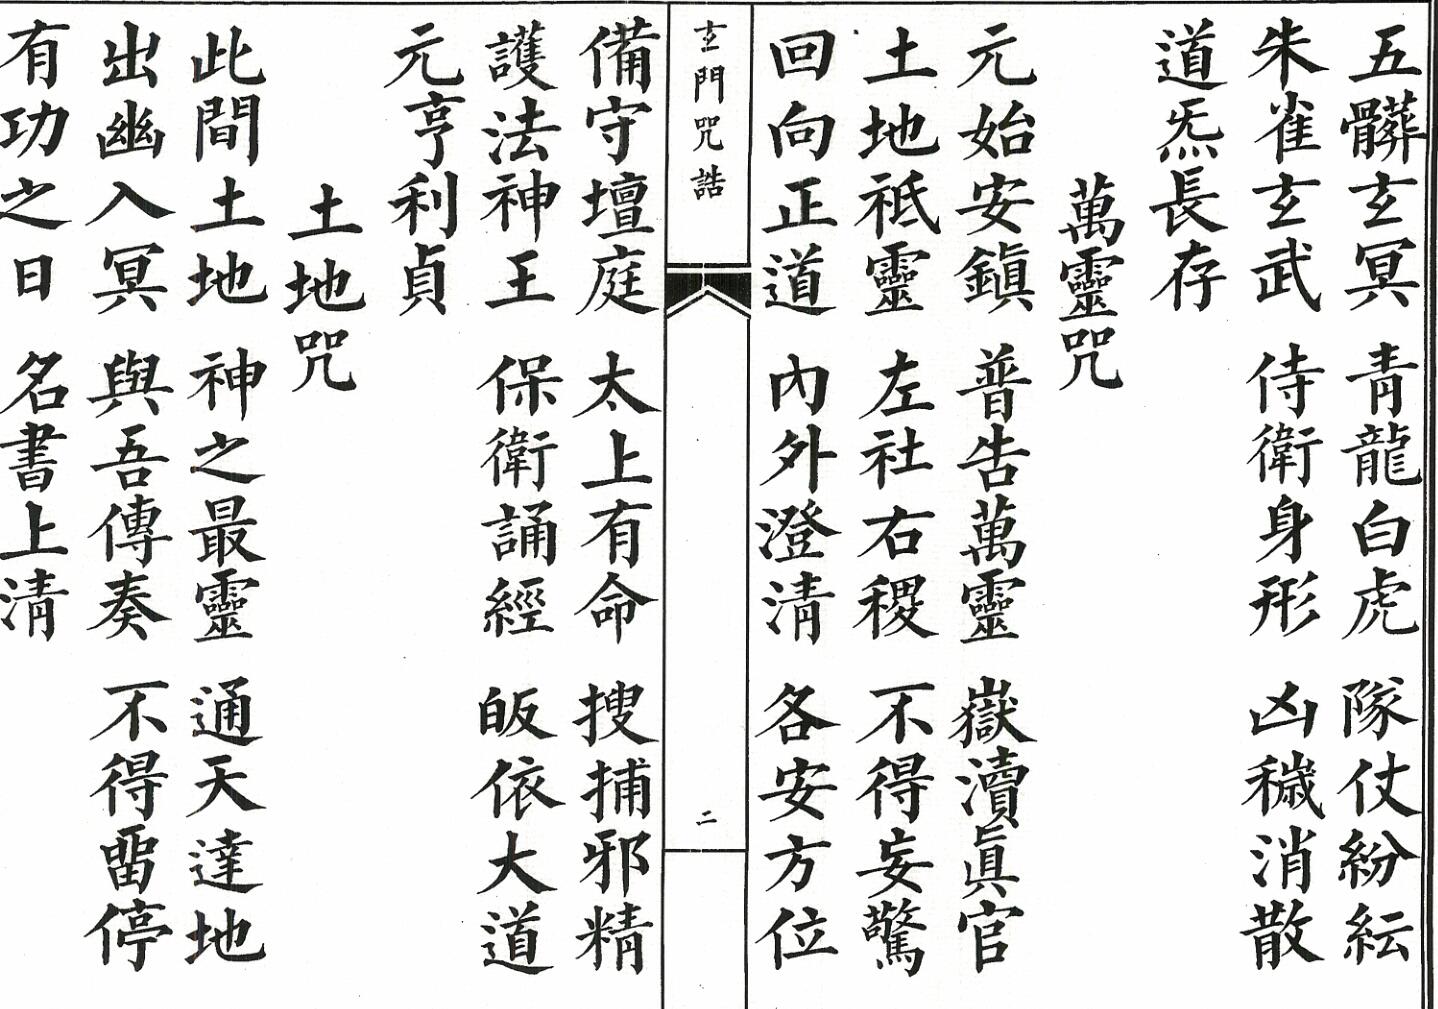 五髒玄冥　青龍白虎　隊仗紛紜
朱雀玄武　侍衛身形　凶穢消散
道炁長存
萬靈咒
元始安鎮　普告萬靈　嶽瀆眞官
土地祗靈　左社右稷　不得妄驚
回向正道　內外澄清　各安方位
玄門咒誥
二
備守壇庭　太上有命　搜捕邪精
護法神王　保衛誦經　皈依大道
元亨利貞
土地咒
此間土地　神之最靈　通天達地
出幽入冥　與吾傳奏　不得畱停
有功之日　名書上清